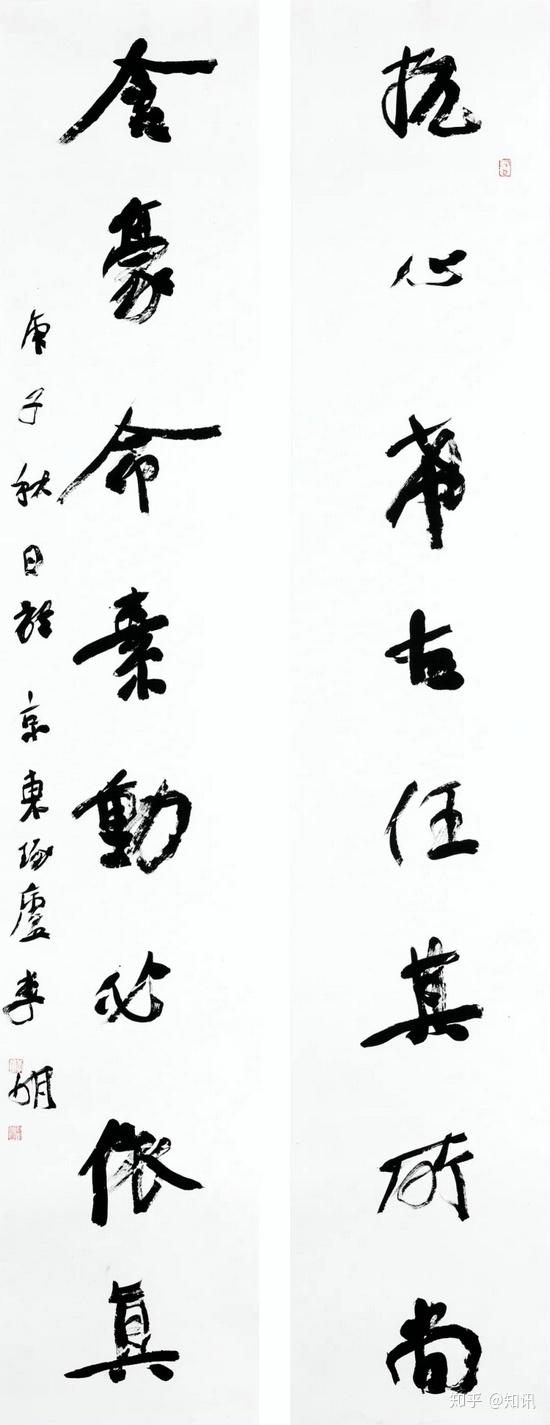 抗心希古任其所尚
含豪命素動必依真
庚子秋日於京東琢廬李明
知乎 @知讯